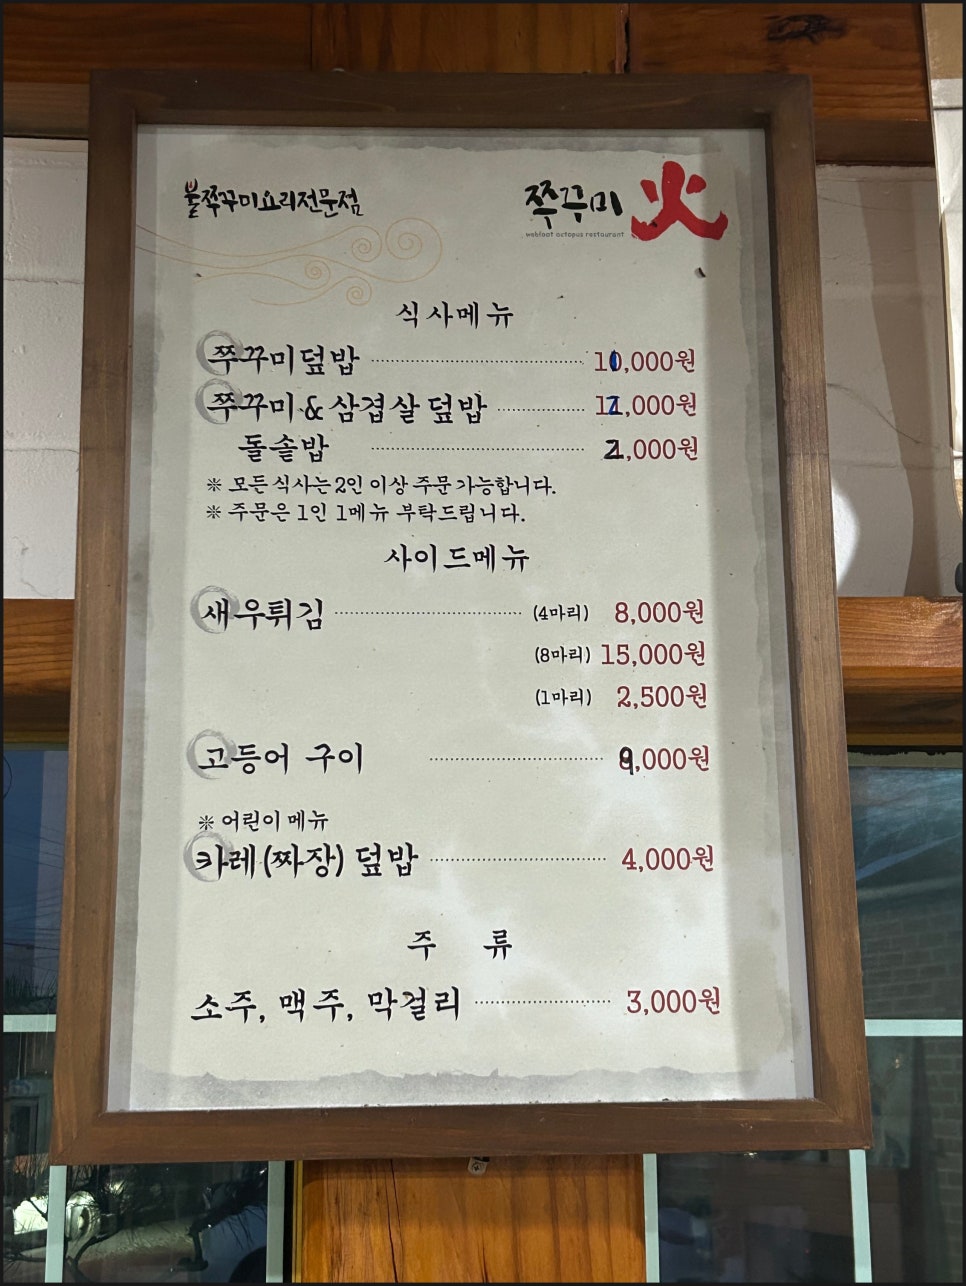 불쭈꾸미요리전문점
쭈꾸미 火
webfoot octopus restaurant
식사메뉴
쭈꾸미덮밥 10,000원
쭈꾸미&삼겹살덮밥 12,000원
돌솥밥 2,000원
※ 모든 식사는 2인 이상 주문 가능합니다.
※ 주문은 1인 1메뉴 부탁드립니다.
사이드메뉴
새우튀김 (4마리) 8,000원
(8마리) 15,000원
(1마리) 2,500원
고등어 구이 9,000원
※ 어린이 메뉴
카레(짜장) 덮밥 4,000원
주 류
소주, 맥주, 막걸리 3,000원